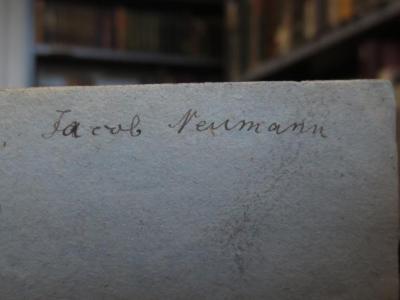 Jacob Neumann